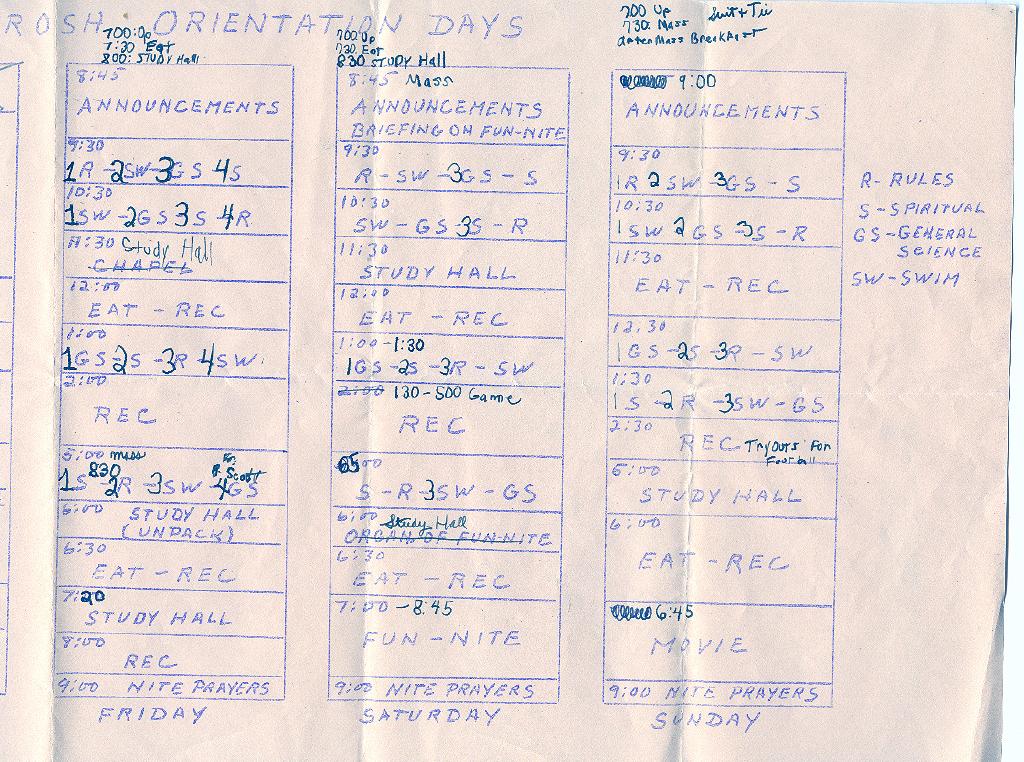 ROSH ORIENTATION DAYS
700: Up
7:30 Eat
800: STUDY Hall
8:45
ANNOUNCEMENTS
9:30
1R - 2SW - 3GS 4S
10:30
1SW - 2GS 3S 4R
11:30 Study Hall
CHAPEL
12:00
EAT - REC
1:00
1GS - 2S - 3R 4SW
2:00
REC
5:00 mass
830
1S - 2R - 3SW - 4GS
6:00 STUDY HALL
(UNPACK)
6:30
EAT - REC
7:20
STUDY HALL
8:00
REC
9:00 NITE PRAYERS
FRIDAY
700 Up
730 Eat
830 STUDY Hall
8:45 Mass
ANNOUNCEMENTS
BRIEFING ON FUN-NITE
9:30
R - SW - 3GS - S
10:30
SW - GS - 3S - R
11:30
STUDY HALL
12:00
EAT - REC
1:00 - 1:30
1GS - 2S - 3R - SW
2:00 130 - 500 Game
REC
5:00
S - R 3SW - GS
6:00 Study Hall
ORGAN. OF FUN-NITE
6:30
EAT - REC
7:00 - 8:45
FUN - NITE
9:00 NITE PRAYERS
SATURDAY
700 Up Suit + Tie
730: Mass
after Mass Breakfast
9:00
ANNOUNCEMENTS
9:30
1R 2SW - 3GS - S
10:30
1SW 2GS - 3S - R
11:30
EAT - REC
12:30
1GS - 2S - 3R - SW
1:30
1S - 2R - 3SW - GS
2:30
REC Tryouts For
Football
5:00
STUDY HALL
6:00
EAT - REC
6:45
MOVIE
9:00 NITE PRAYERS
SUNDAY
R - RULES
S - SPIRITUAL
GS - GENERAL
SCIENCE
SW - SWIM